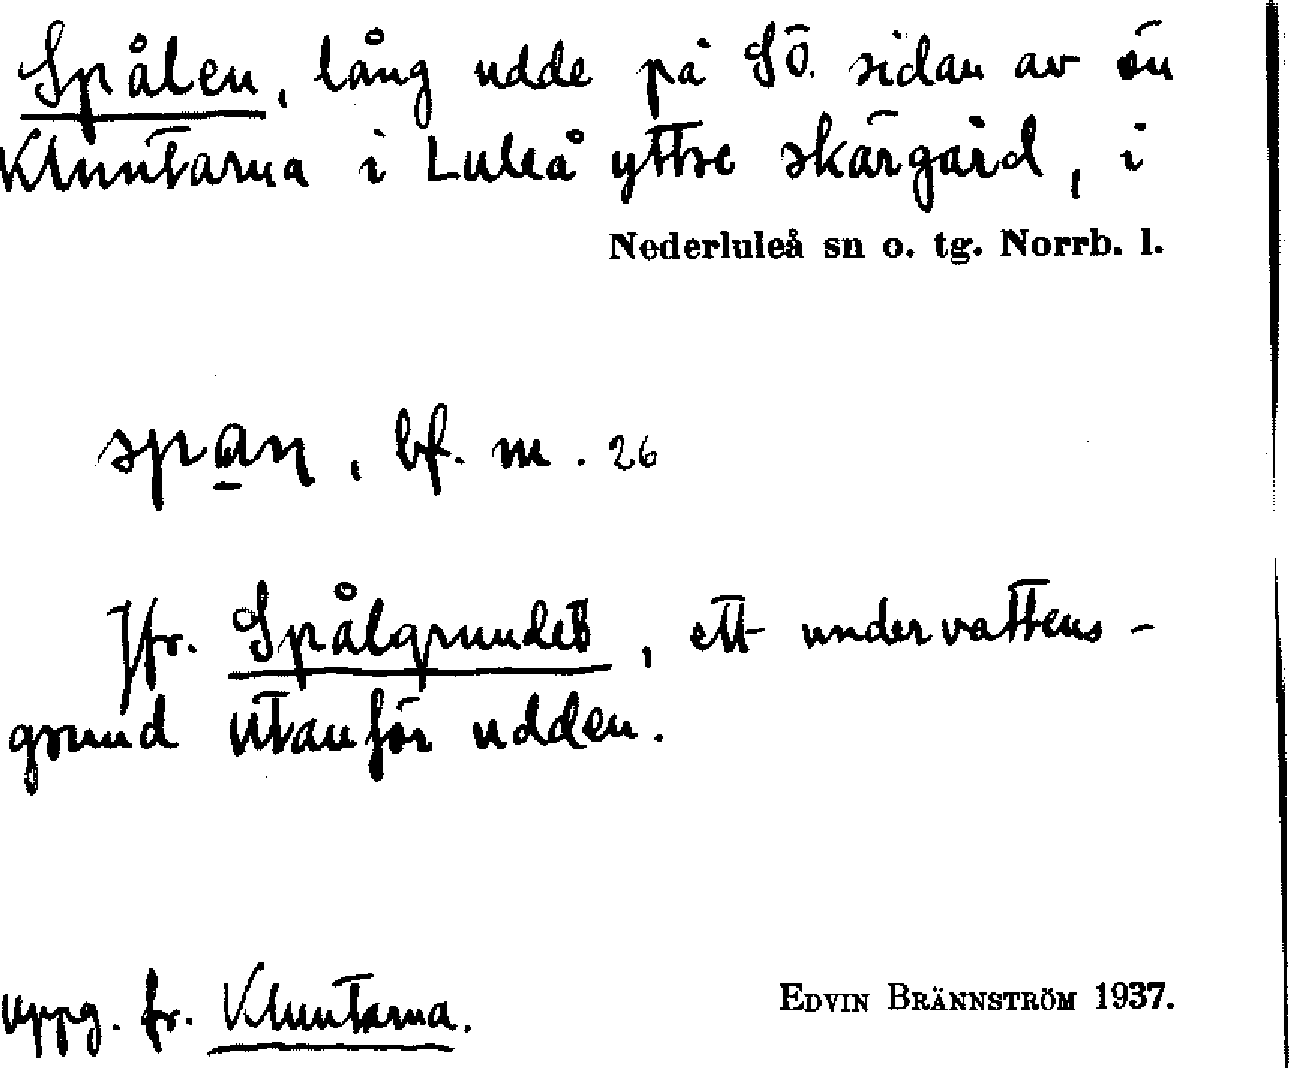 Spålen, lång udde på SÖ. sidan av ön
Kluntarna i Luleå yttre skärgård, i
Nederluleå sn o. tg. Norrb. l.
span, bf. m. 26
Jfr. Spålgrundet, ett undervattens-
grund utanför udden.
Uppg. fr. Kluntarna.
EDVIN BRÄNNSTRÖM 1937.